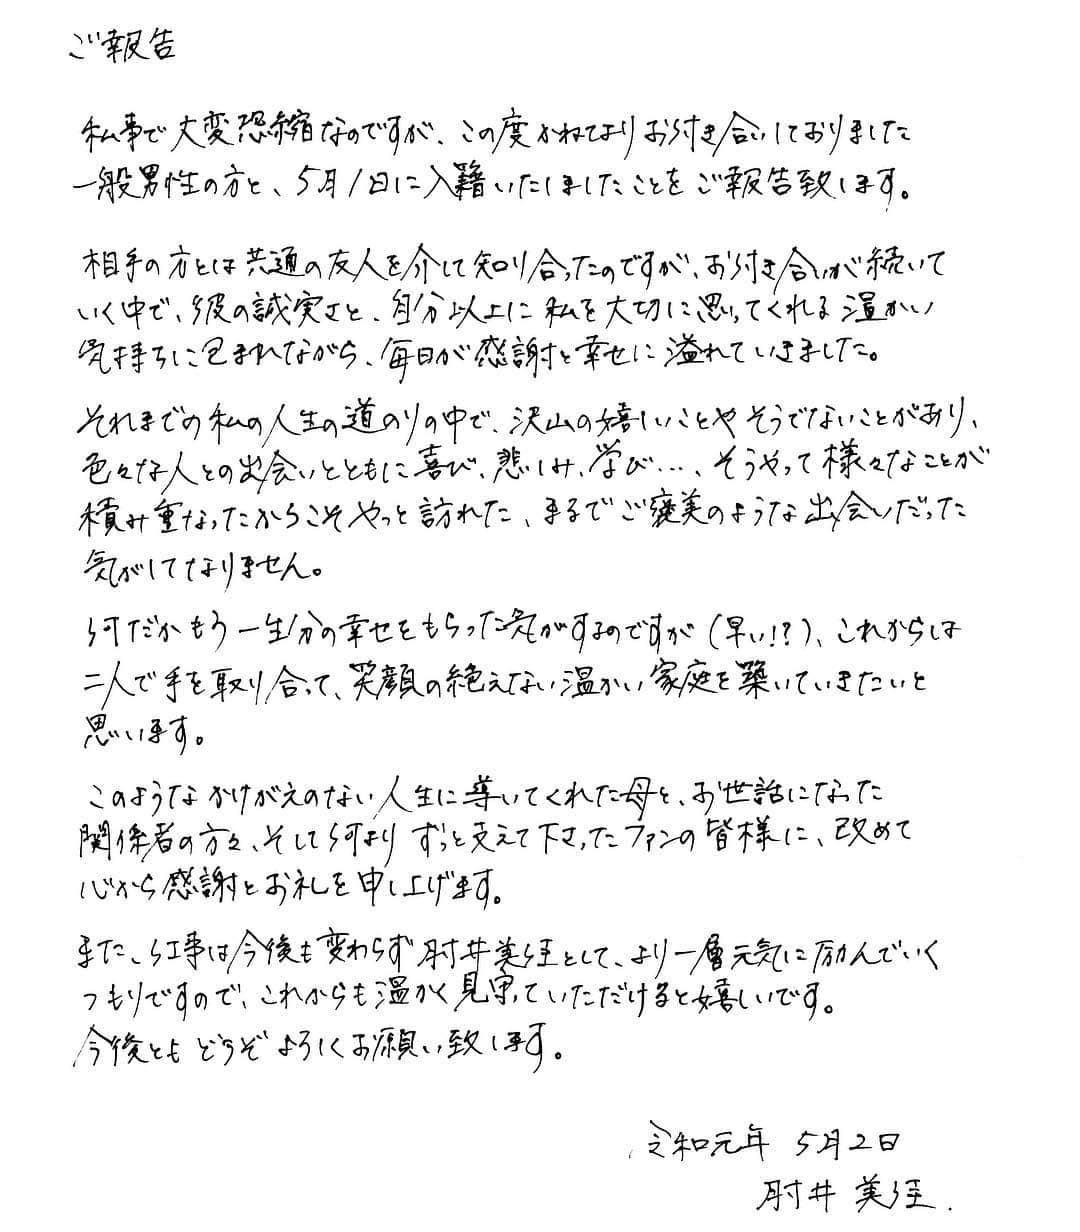 ご報告
私事で大変恐縮なのですが、この度かねてよりお付き合いしておりました
一般男性の方と、5月1日に入籍いたしましたことをご報告致します。
相手の方とは共通の友人を介して知り合ったのですが、お付き合いが続いて
いく中で、彼の誠実さと、自分以上に私を大切に思ってくれる温かい
気持ちに包まれながら、毎日が感謝と幸せに溢れていきました。
それまでの私の人生の道のりの中で、沢山の嬉しいことやそうでないことがあり、
色々な人との出会いとともに喜び、悲しみ、学び…、そうやって様々なことが
積み重なったからこそやっと訪れた、まるでご褒美のような出会いだった
気がしてなりません。
何だかもう一生分の幸せをもらった気がするのですが(早い!?)、これからは
二人で手を取り合って、笑顔の絶えない温かい家庭を築いていきたいと
思います。
このようなかけがえのない人生に導いてくれた母と、お世話になった
関係者の方々、そして何よりずっと支えて下さったファンの皆様に、改めて
心から感謝とお礼を申し上げます。
また、仕事は今後も変わらず肘井美佳として、より一層元気に励んでいく
つもりですので、これからも温かく見守っていただけると嬉しいです。
今後ともどうぞよろしくお願い致します。
令和元年 5月2日
肘井 美佳.